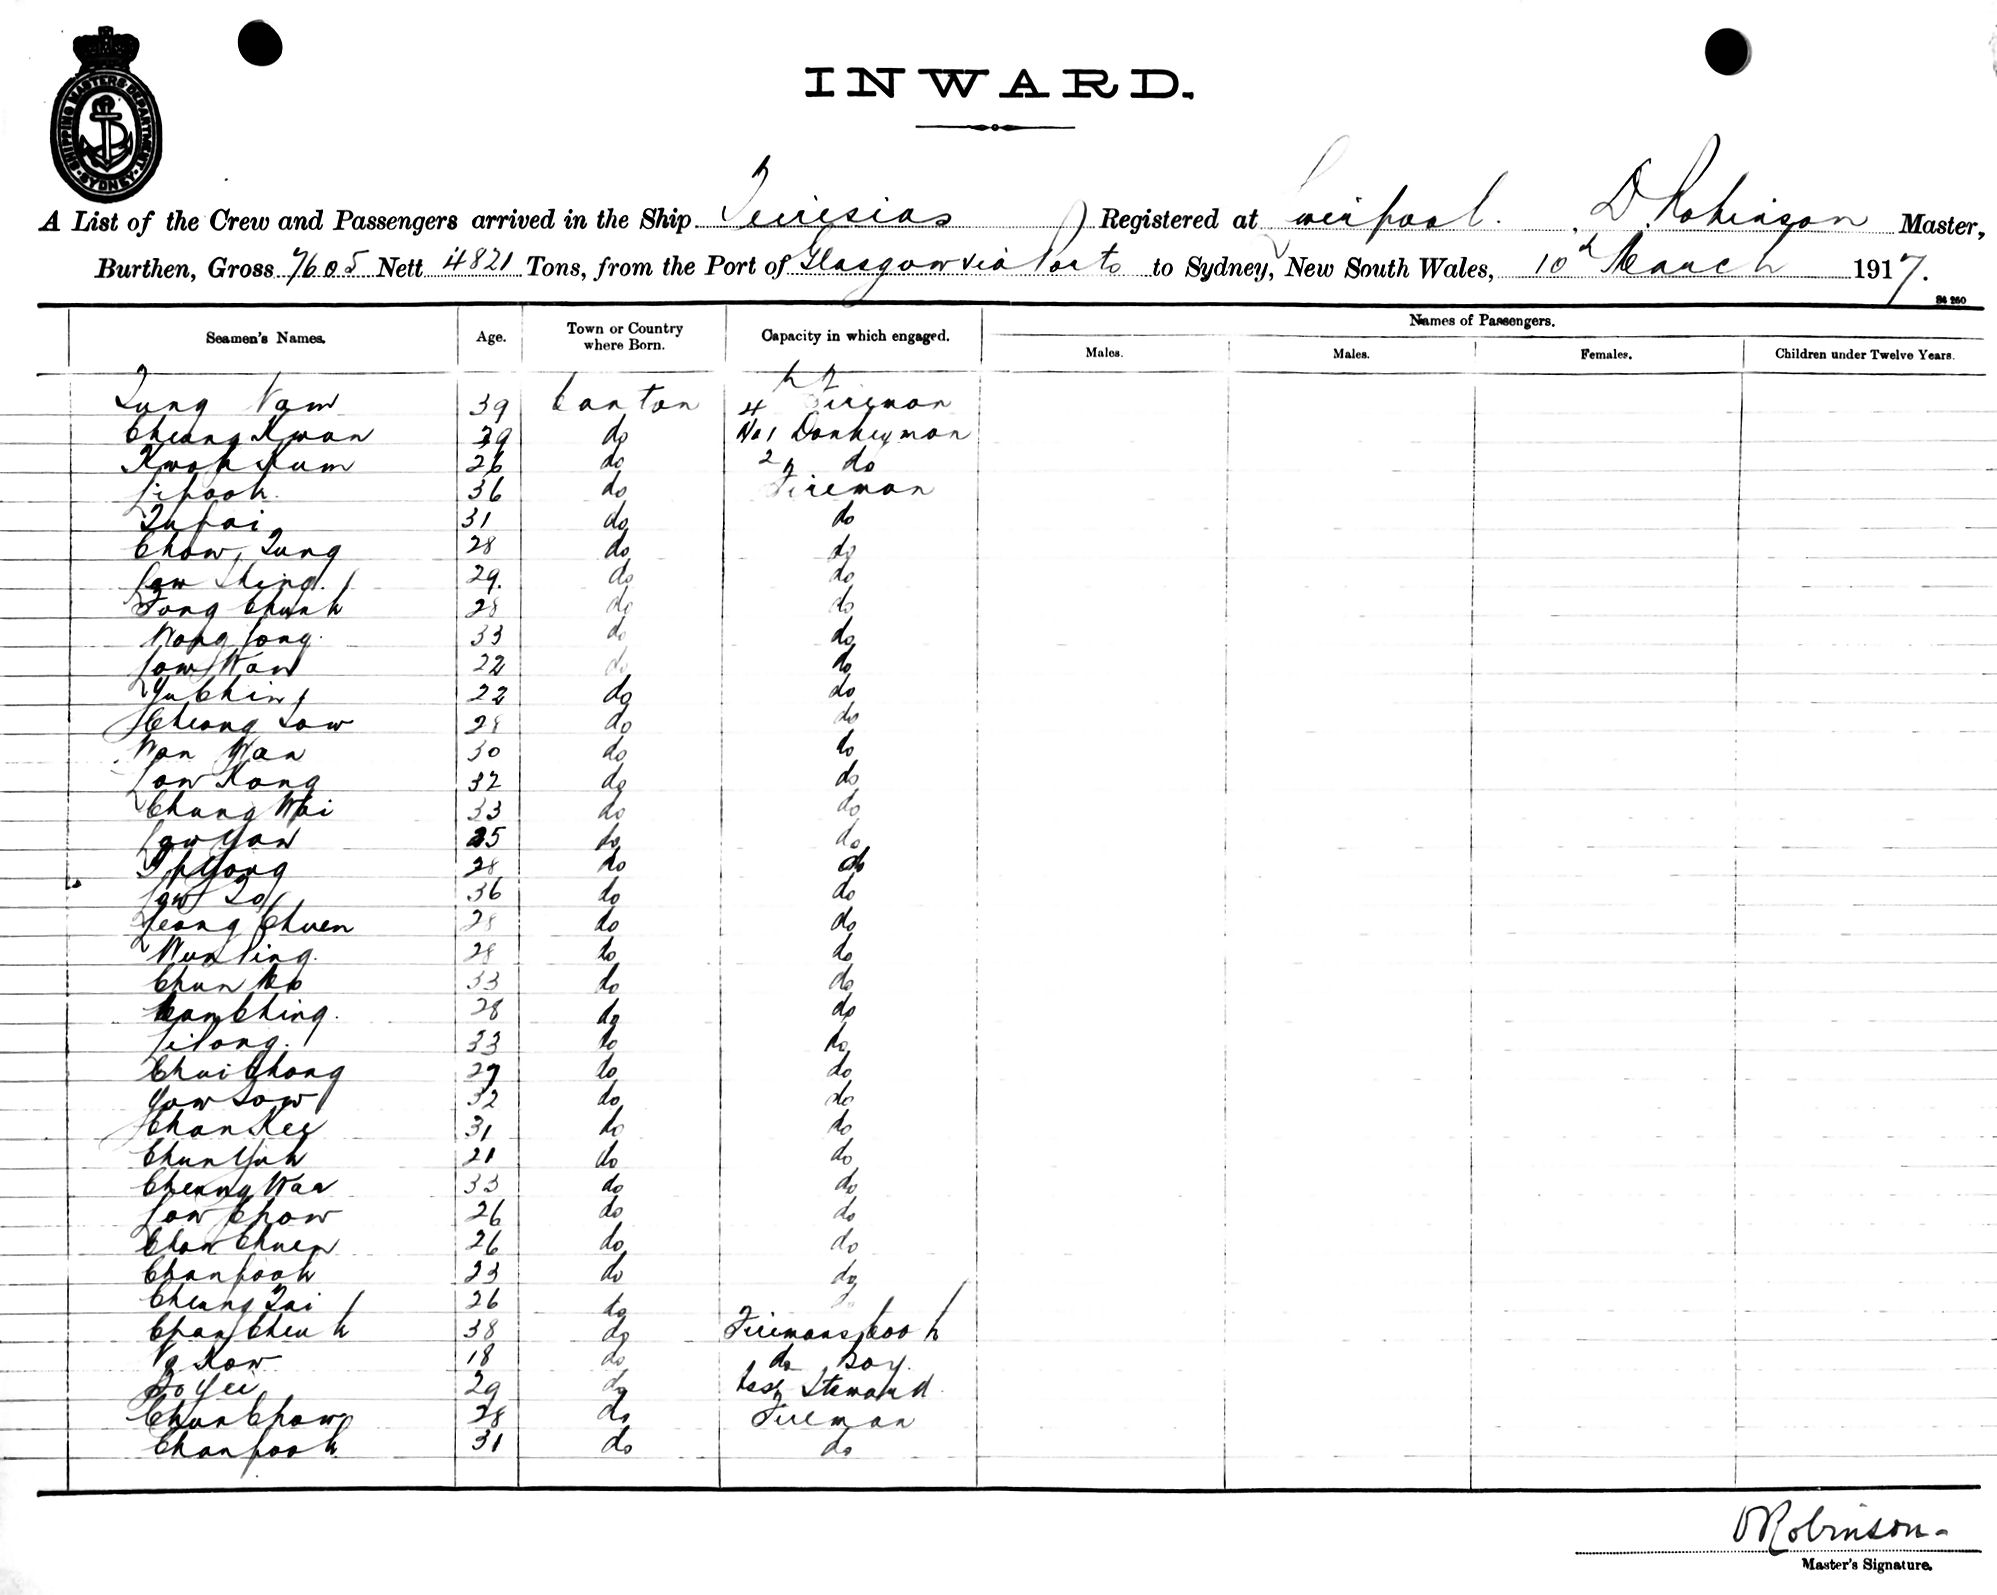 SHIPPING MASTERS DEPARTMENT · SYDNEY ·
INWARD.
A List of the Crew and Passengers arrived in the Ship Teiresias Registered at Liverpool. D. Robinson Master,
Burthen, Gross 7605 Nett 4821 Tons, from the Port of Glasgow via Ports to Sydney, New South Wales, 10th March 1917.
84 260
Seamen's Names. Age. Town or Country where Born. Capacity in which engaged. Names of Passengers.
Males. Males. Females. Children under Twelve Years.
Tung Nam 39 Canton 4 Fireman
Cheung Kwan 29 do No 1 Donkeyman
Kwok Kum 26 do 2 do
Li pook 36 do Fireman
31 do do
Chow Tung 28 do do
Law Shing 29. do do
Tong Chunk 28 do do
Wong Long. 33 do do
Low Wan 22 do do
Yu Chin 22 do do
Cheong Sow 28 do do
Wan Wan 30 do do
Low Kong 32 do do
Chung Wai 33 do do
Low Yan 25 do do
Ip Yong 28 do do
Law So 36 do do
Leong Chuen 28 do do
Wun Ping. 28 do do
Chun 33 do do
Kam Ching. 28 do do
Li Tong. 33 do do
Chui Chong 27 do do
Yow Sow 32 do do
Chan Kee 31 do do
Chun Yuk 21 do do
Cheung Wan 33 do do
Low Chow 26 do do
Chow Chuen 26 do do
Chan pook 23 do do
Cheung Tai 26 do do
Chan Cheuk 38 do Firemans Cook
Ng Kow 18 do do Boy.
So Yee 29 do Asst Steward.
Chun Chow 28 do Fireman
Chan pook 31 do do
D Robinson
Master's Signature.